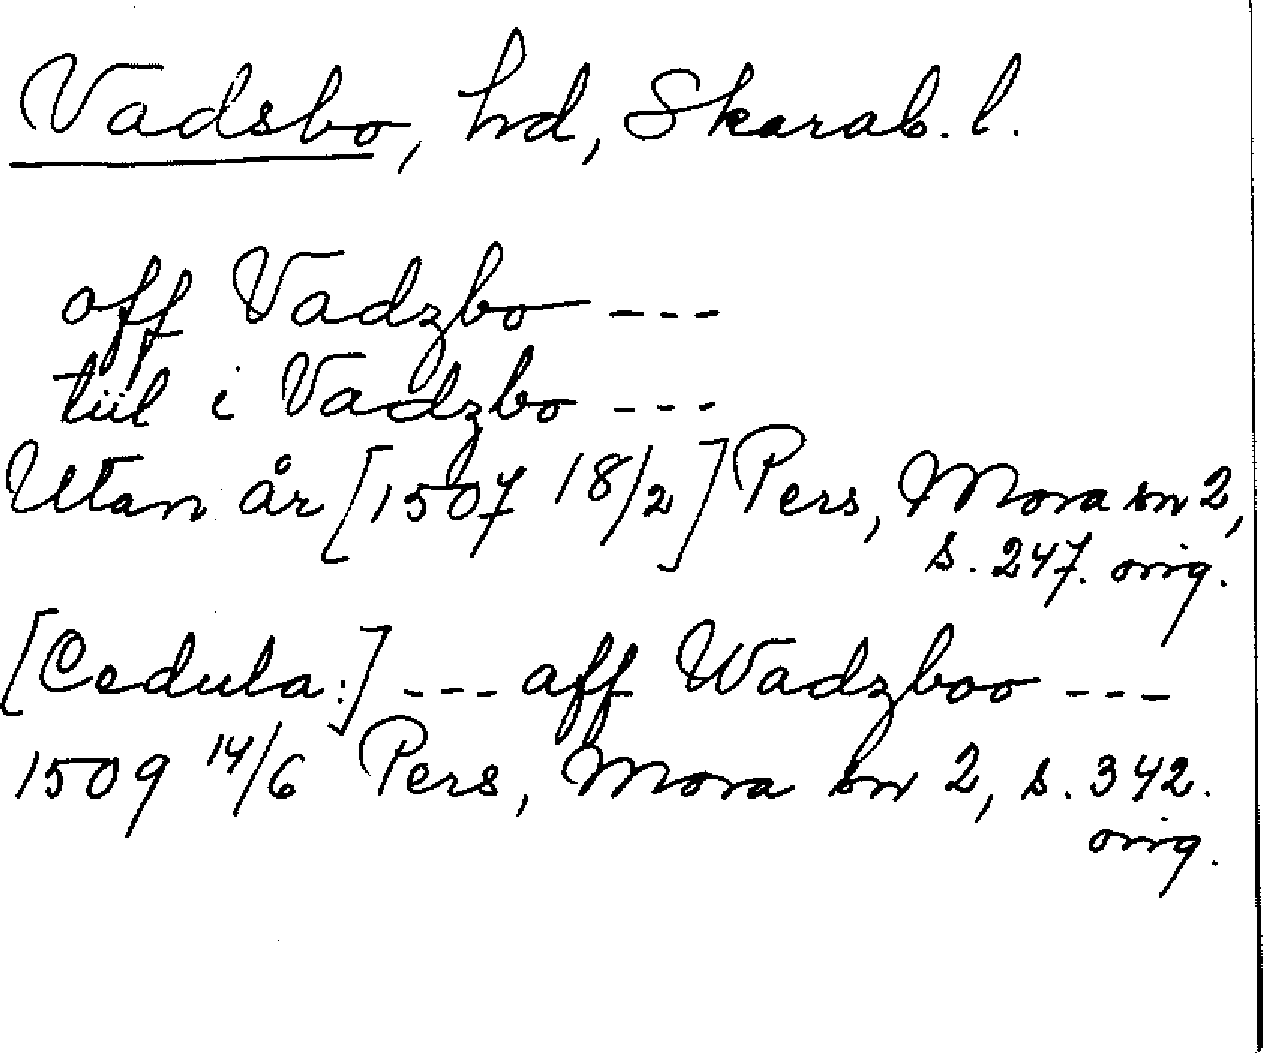 Vadsbo, hd, Skarab. l.
off Vadzbo ---
tiil i Vadzbo ---
Utan år [1507 18/2] Pers, Mora sn 2,
s. 247. orig.
[Cedula:] --- aff Wadzboo ---
1509 14/6 Pers, Mora sn 2, s. 342.
orig.